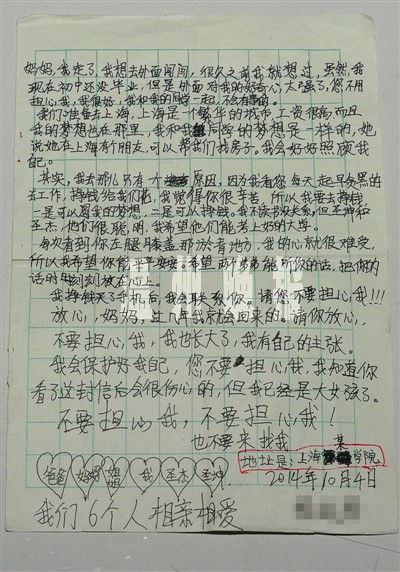 妈妈,我走了,我想去外面闯闯,很久之前我就想过,虽然,我
现在初中还没毕业,但是外面对我的好奇心太强了,您不用
担心我,我很好,我和我的同学一起,不会有事的。
我们准备去上海,上海是一个繁华的城市,工资很高而且
我的梦想也在那里,我和我同学的梦想是一样的,她
说她在上海有个朋友,可以帮我们找房子。我会好好照顾我
自己。
其实,我去那儿只有一大原因,因为我看您每天起早贪黑的
去工作,挣钱给我们花,我觉得你很辛苦,所以我要去挣钱
一是可以圆我的梦想,二是可以挣钱。我不读书没关系,但圣坤和
圣杰,他们很聪明,我希望他们能考上好的大学。
每次看到你左腿膝盖那淤青地方,我的心就很难受,
所以我希望你能平平安安。希望两个弟弟能听你的话,把你的
话时时刻刻放在心上。
我挣钱买了手机后,我会联系你。请您不要担心我!!!
放心,妈妈,过年我就会回来的。请你放心,
不要担心我,我也长大了,我有自己的主张。
我会保护好我自己,您不要担心我,我知道你
看了这封信后会很伤心的,但我已经是大女孩了。
不要担心我,不要担心我!
也不要来找我 某
地址是:上海学院
爸爸 妈妈 姐姐 我 圣杰 圣坤
2014年10月4日
我们6个人相亲相爱